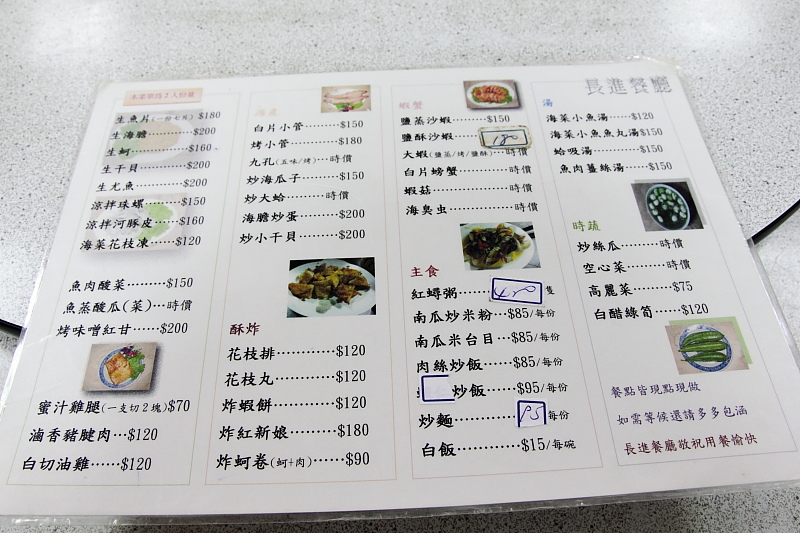 長進餐廳
本菜單為2人份量
生魚片(一份七片) $180
生海膽………$200
生蚵…………$160
生干貝………$200
生尤魚………$200
涼拌珠螺……$150
涼拌河豚皮……$160
海菜花枝凍……$120
魚肉酸菜………$150
魚蒸酸瓜(菜)…時價
烤味噌紅甘……$200
蜜汁雞腿(一支切2塊)$70
滷香豬腱肉…$120
白切油雞……$120
海產
白片小管………$150
烤小管…………$180
九孔(五味/烤)…時價
炒海瓜子………$150
炒大蛤………時價
海膽炒蛋………$200
炒小干貝………$200
酥炸
花枝排…………$120
花枝丸…………$120
炸蝦餅…………$120
炸紅新娘………$180
炸蚵卷(蚵+肉)…$90
蝦蟹
鹽蒸沙蝦………$150
鹽酥沙蝦……180
大蝦(鹽蒸/烤/鹽酥)…時價
白片螃蟹………時價
蝦菇……………時價
海臭虫…………時價
主食
紅蟳粥……450隻
南瓜炒米粉…$85/每份
南瓜米台目…$85/每份
肉絲炒飯……$85/每份
炒飯……$95/每份
炒麵…………95每份
白飯…………$15/每碗
湯
海菜小魚湯……$120
海菜小魚魚丸湯$150
蛤吸湯…………$150
魚肉薑絲湯……$150
時蔬
炒絲瓜………時價
空心菜………時價
高麗菜………$75
白醋綠筍……$120
餐點皆現點現做
如需等候還請多多包涵
長進餐廳敬祝用餐愉快